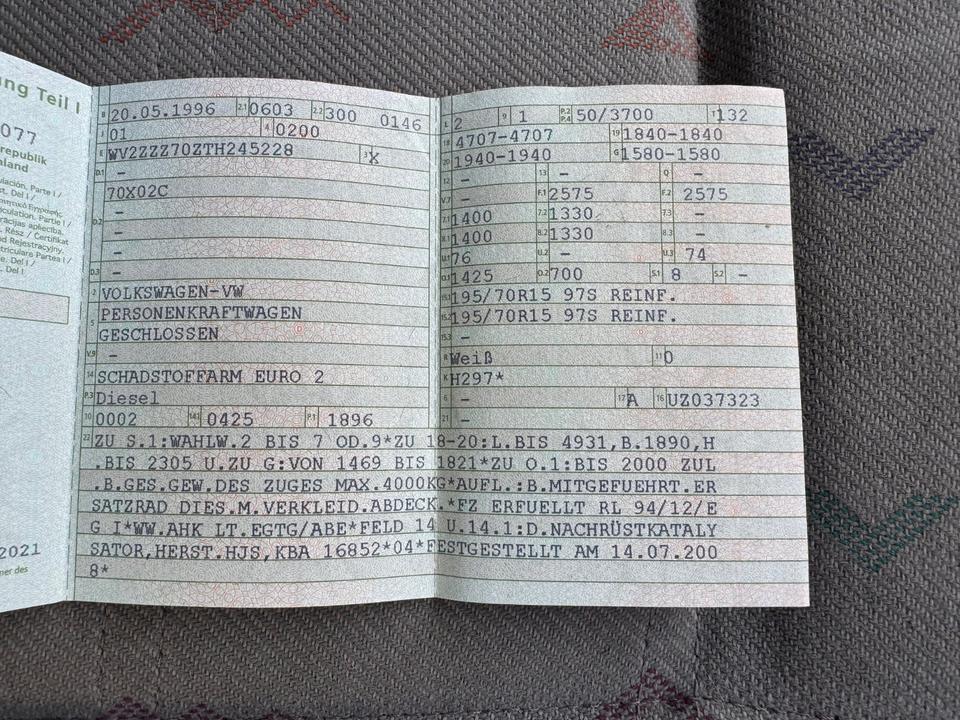 ung Teil I
077
republik
land
2021
B 20.05.1996 2.1 0603 2.2 300 0146
J 01 4 0200
E WV2ZZZ70ZTH245228 3 X
D.1 -
70X02C
-
D.2 -
-
D.3 -
2 VOLKSWAGEN-VW
5 PERSONENKRAFTWAGEN
GESCHLOSSEN
V.9 -
14 SCHADSTOFFARM EURO 2
P.3 Diesel
10 0002 14.1 0425 P.1 1896
L 2 9 1 P.2 P.4 50/3700 T 132
18 4707-4707 19 1840-1840
20 1940-1940 G 1580-1580
12 - 13 - Q -
V.7 - F.1 2575 F.2 2575
7.1 1400 7.2 1330 7.3 -
8.1 1400 8.2 1330 8.3 -
U.1 76 U.2 - U.3 74
O.1 1425 O.2 700 S.1 8 S.2 -
15.1 195/70R15 97S REINF.
15.2 195/70R15 97S REINF.
15.3 -
R Weiß 11 0
K H297*
6 - 17 A 16 UZ037323
21 -
22 ZU S.1:WAHLW.2 BIS 7 OD.9*ZU 18-20:L.BIS 4931,B.1890,H
.BIS 2305 U.ZU G:VON 1469 BIS 1821*ZU O.1:BIS 2000 ZUL
.B.GES.GEW.DES ZUGES MAX.4000KG*AUFL.:B.MITGEFUEHRT.ER
SATZRAD DIES.M.VERKLEID.ABDECK.*FZ ERFUELLT RL 94/12/E
G I*WW.AHK LT.EGTG/ABE*FELD 14 U.14.1:D.NACHRÜSTKATALY
SATOR,HERST.HJS,KBA 16852*04*FESTGESTELLT AM 14.07.200
8*